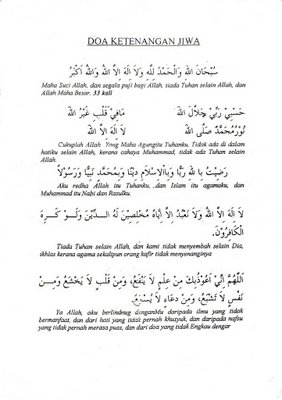 DOA KETENANGAN JIWA
سُبْحَانَ اللهِ وَالْحَمْدُ لِلَّهِ وَلاَ اِلَهَ اِلاَّ اللهُ وَاللهُ اَكْبَرُ
Maha Suci Allah, dan segala puji bagi Allah, tiada Tuhan selain Allah, dan
Allah Maha Besar. 33 kali
حَسْبِيْ رَبِّيْ جَلاَلَ اللهِ مَافِيْ قَلْبِ غَيْرُ اللهِ
نُوْرُ مُحَمَّدْ صَلَّى اللهِ لاَ اِلَهَ اِلاَّ اللهُ
Cukuplah Allah Yang Maha Agung itu Tuhanku. Tidak ada di dalam
hatiku selain Allah, kerana cahaya Muhammad, tidak ada Tuhan selain
Allah.
رَضِيْتُ بِا للهِ رَبًّا وَبِالاِسْلاَمِ دِيْنًا وَبِمُحَمَّدٍ نَبِيًّا وَرَسُوْلاً
Aku redha Allah itu Tuhanku, dan Islam itu agamaku, dan
Muhammad itu Nabi dan Rasulku.
لاَ اِلَهَ اِلاَّ اللهُ وَلاَ نَعْبُدُ اِلاَّ اِيَّاهُ مُخْلِصِيْنَ لَهُ الدِّيْنَ وَلَوْ كَرِهَ
الْكَافِرُوْنَ.
Tiada Tuhan selain Allah, dan kami tidak menyembah selain Dia,
ikhlas kerana agama sekalipun orang kafir tidak menyenanginya
اَللَّهُمَّ اِنِّي اَعُوْذُبِكَ مِنْ عِلْمٍ لاَ يَنْفَعُ، وَمِنْ قَلْبٍ لاَ يَخْشَعُ وَمِنْ
نَفْسٍ لاَ تَشْبَعُ، وَمِنْ دُعَاءٍ لاَ يُسْمَعُ.
Ya Allah, aku berlindung denganMu daripada ilmu yang tidak
bermanfaat, dan dari hati yang tidak pernah khusyuk, dan daripada nafsu
yang tidak pernah merasa puas, dan dari doa yang tidak Engkau dengar